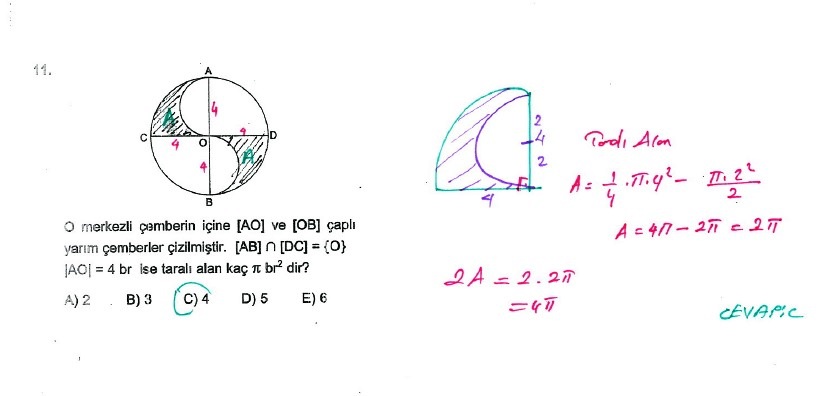 11.
A
4
A
4
C
4
O
D
4
A
B
O merkezli çemberin içine [AO] ve [OB] çaplı
yarım çemberler çizilmiştir. [AB] ∩ [DC] = {O}
|AO| = 4 br ise taralı alan kaç π br² dir?
A) 2 B) 3 C) 4 D) 5 E) 6
2
4
2
4
Taralı Alan
A = 1/4 · π · 4² − π · 2²/2
A = 4π − 2π = 2π
2A = 2 · 2π
= 4π
CEVAP: C